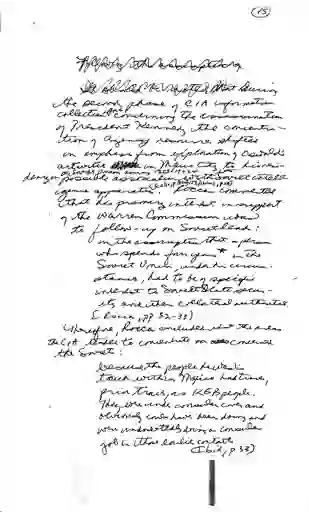 (15)
that during
the second phase of CIA information
collection concerning the assassination
of President Kennedy the concentra-
tion of Agency resources shifted
in emphasis from exploration of Oswald's
activities in Mexico City to his
possible association with Soviet intelli-
gence apparatus. Rocca commented
that his primary interest in support
of the Warren Commission was
to follow-up on Soviet leads:
on the assumption that a person
who spends four years* in the
Soviet Union, under his circum-
stances, had to be of specific
interest to Soviet State secur-
ity and their collateral authorities.
(Rocca, pp 32-33)
Therefore, Rocca concluded that the areas
the CIA tended to concentrate on concerned
the Soviet:
because the people he was in
touch with in Mexico had traces,
prior traces, as KGB people.
They were under consular cover and
obviously could have been doing and
were undoubtedly doing a consular
job in those earlier contacts.
(Ibid, p 33)